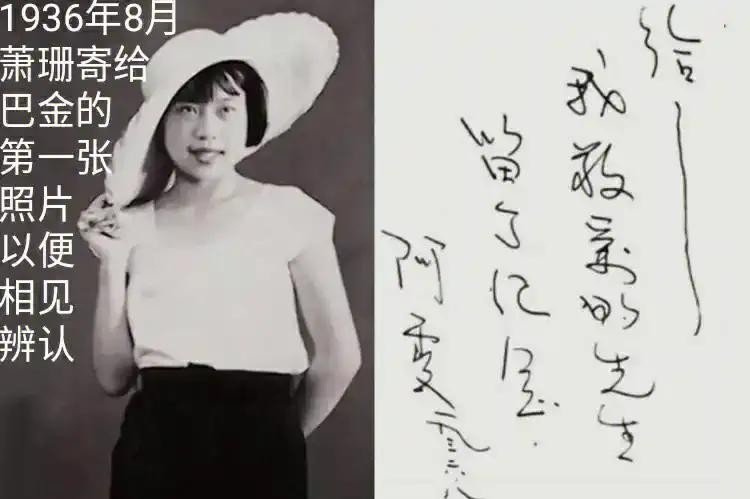 1936年8月
萧珊寄给
巴金的
第一张
照片
以便
相见
辨认
给
我敬爱的先生
留个记念
阿雯
一九三六·八